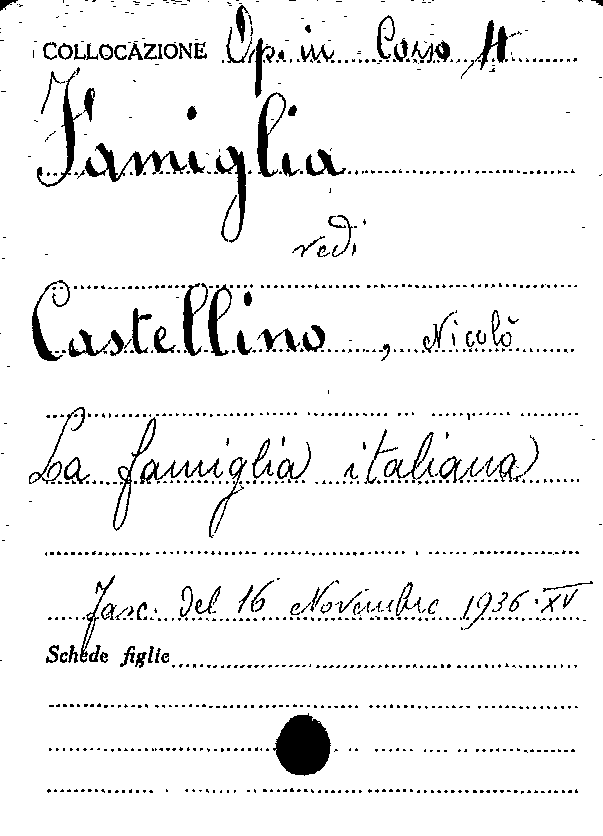 COLLOCAZIONE Op. in Corso H
Famiglia
vedi
Castellino, Nicolò
La famiglia italiana
Fasc. del 16 Novembre 1936·XV
Schede figlie